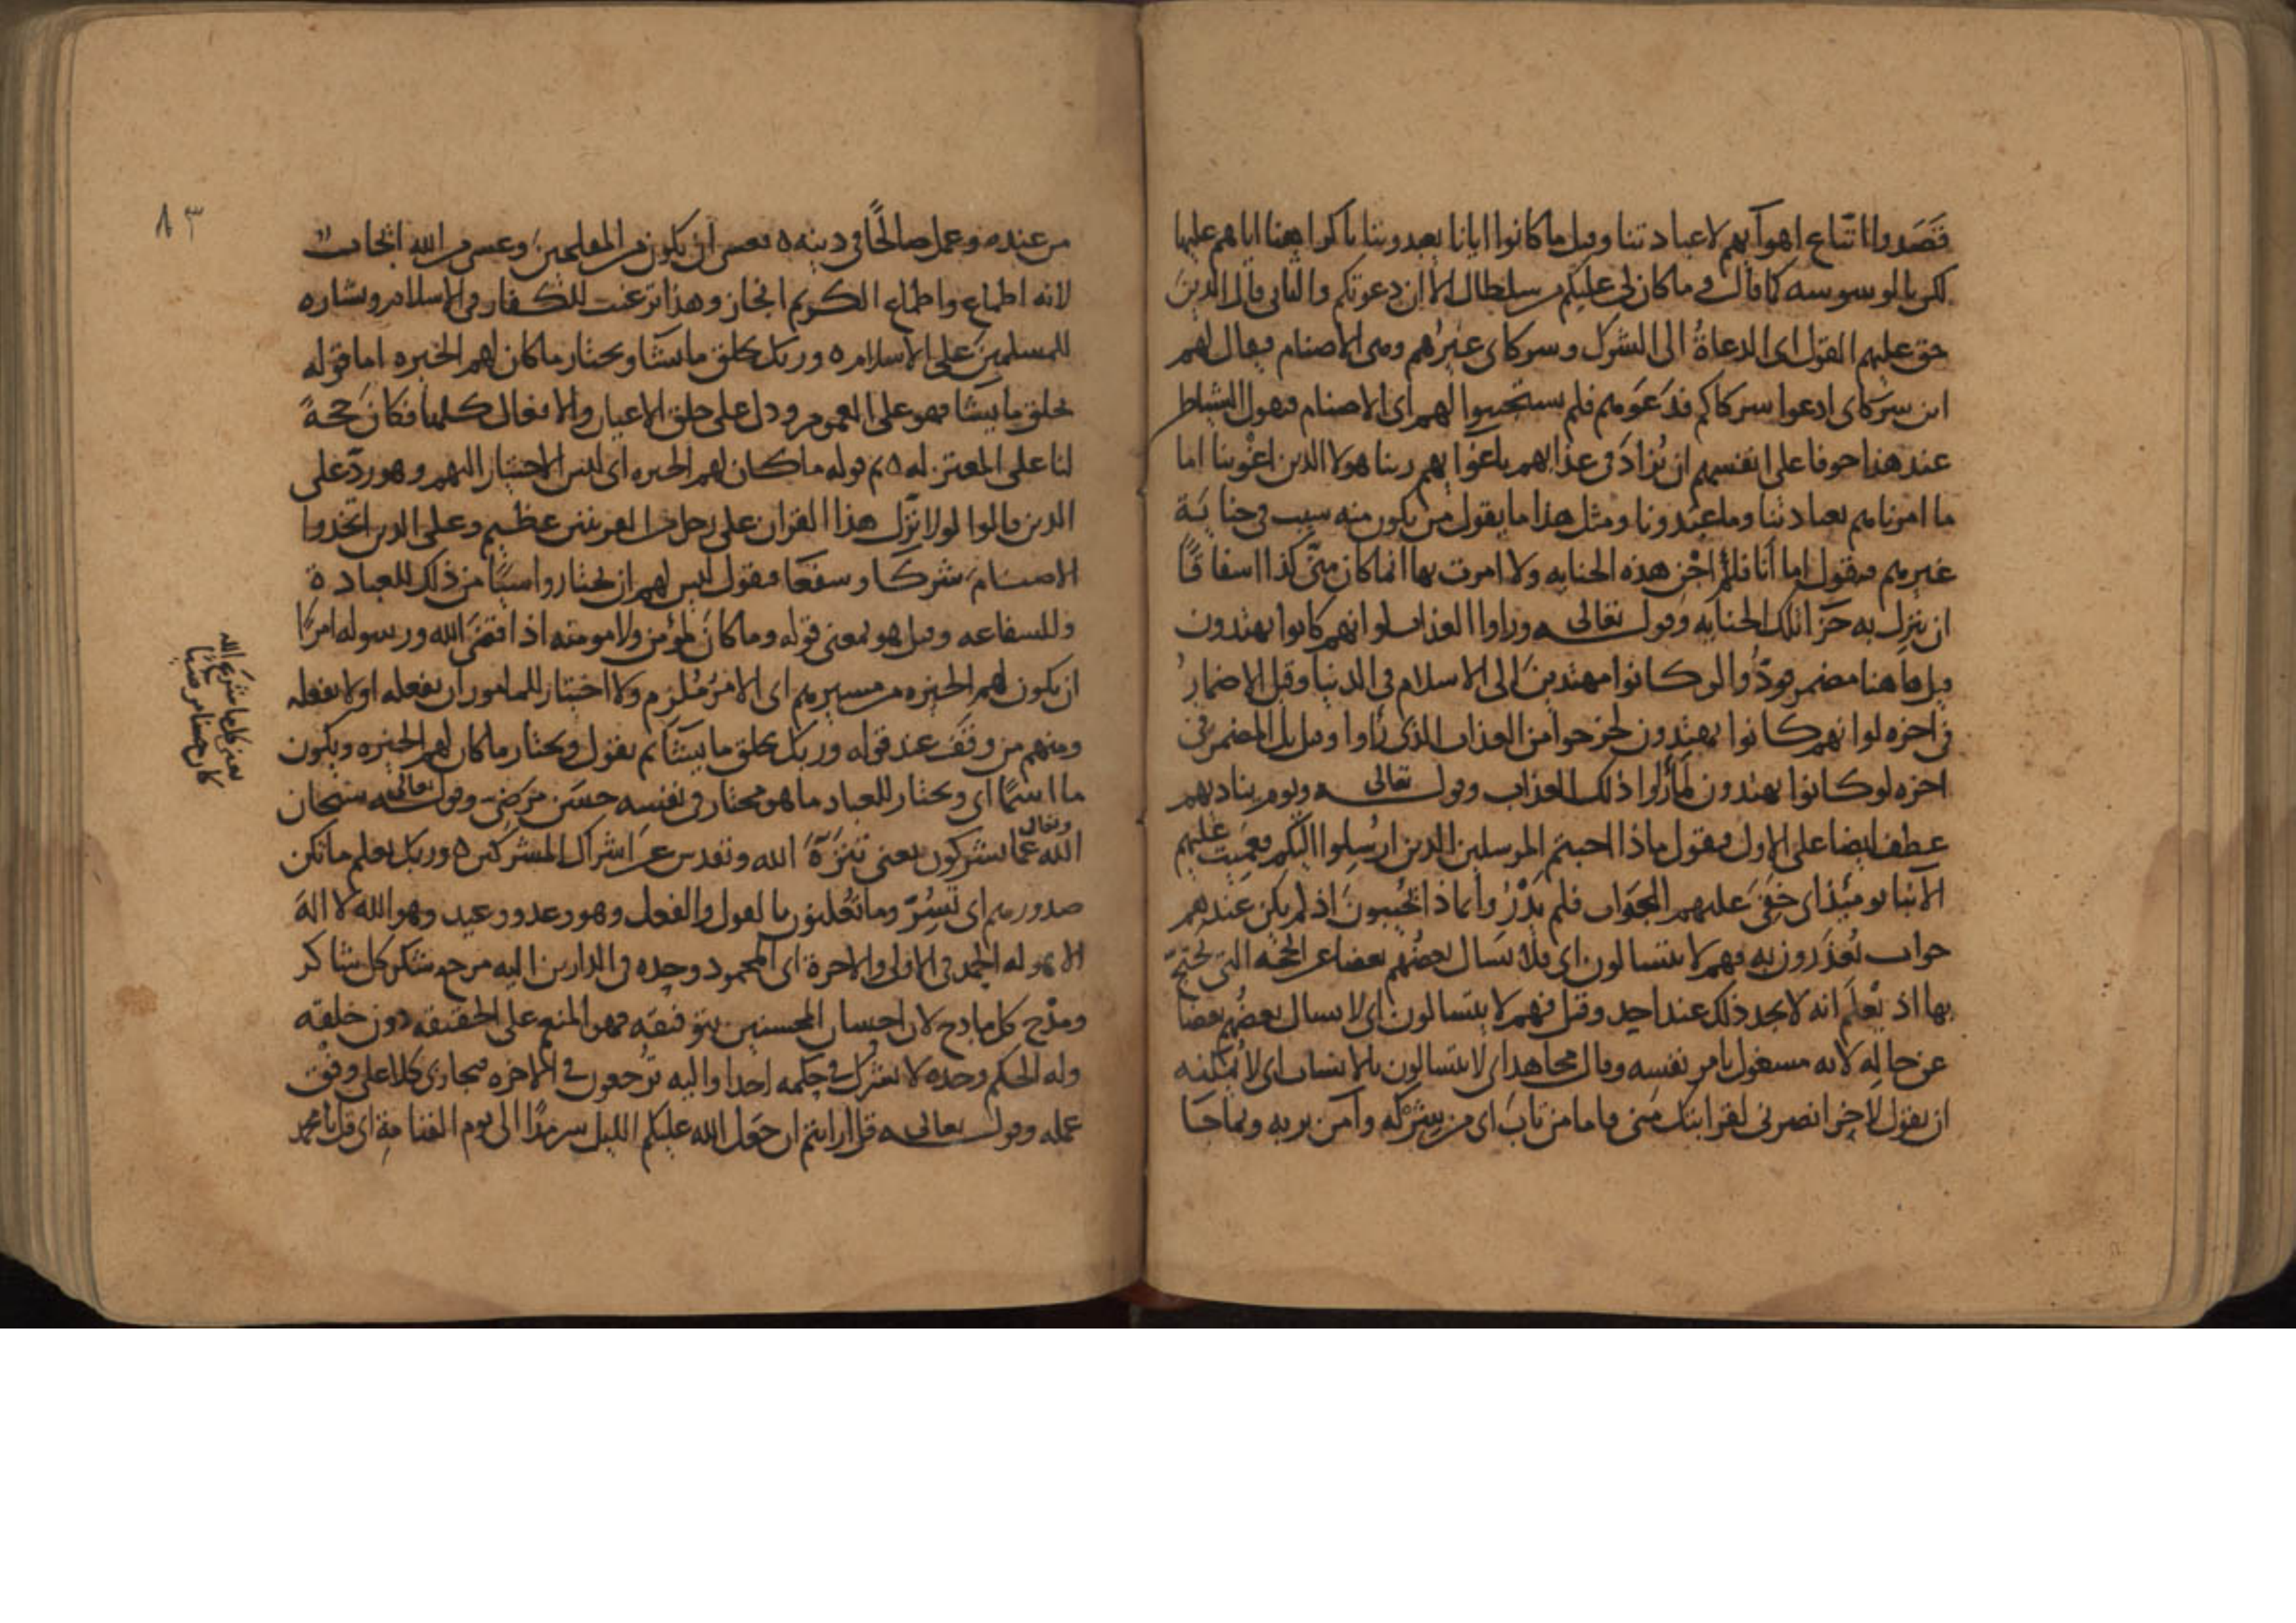 فَصَدوا اتباع اهوآيهم لا عبادتنا وقيل ما كانوا ايانا يعبدون بنا باكراهنا اياهم عليها
لكن بالوسوسه كما قال وما كان لى عليكم من سلطان الا ان دعوتكم والثانى قال الذين
حق عليهم القول اى الدعاة الى الشرك وشركاى غيرهم وهى الاصنام فيقال لهم
اين شركاى ادعوا شركاكم فدعوهم فلم يستجيبوا لهم اى الاصنام فيقول الشياطين
عند هذا خوفا على انفسهم ان يُزادَ فى عذابهم باغوايهم ربنا هولا الذين اغوينا اما
ما امرناهم بعبادتنا وما عبدونا ومثل هذا ما يقول من يكون منه سبب فى جناية
غيرهم فيقول اما انا فلم اجْنِ هذه الجنايه ولا امرت بها انما كان منى كذا اشفاقًا
ان ينزل به جزا تلك الجنايه وقوله تعالى وراوا العذاب لو انهم كانوا يهتدون
قيل هاهنا مضمر ودوا لو كانوا مهتدين الى الاسلام فى الدنيا وقيل الاضمار
فى اخره لو انهم كانوا يهتدون لخرجوا من العذاب الذى راوا وقيل بل المضمر فى
اخره لو كانوا يهتدون لما راوا ذلك العذاب وقوله تعالى ويوم يناديهم
عطف ايضا على الاول فيقول ماذا اجبتم المرسلين الذين ارسلوا اليكم فعميت عليهم
الانبا يوميذ اى خفى عليهم الجواب فلم يدروا بماذا يجيبون اذ لم يكن عندهم
جواب يُعذَرون به فهم لا يتسالون اى فلا يسال بعضهم بعضا عن الحجه التى يحتج
بها اذ يعلم انه لا يجد ذلك عند احد وقيل فهم لا يتسالون اى لا يسال بعضهم بعضا
عن حاله لانه مشغول بامر نفسه وقال مجاهد اى لا يتسالون بالانساب اى لا يمكنه
ان يقول لاخر انصرنى لقرابتك منى فاما من تاب اى من شركه وآمن بربه وبما جا
٨٣
من عنده وعمل صالحًا فى دينه فعسى ان يكون من المفلحين وعسى من الله ايجاب
لانه اطماع واطماع الكريم انجاز وهذا ترغيب للكفار فى الاسلام وبشاره
للمسلمين على الاسلام وربك يخلق ما يشا ويختار ما كان لهم الخيره اما قوله
يخلق ما يشا فهو على العموم ودل على خلق الاعيان والافعال كلها فكان حجةً
لنا على المعتزله ثم قوله ما كان لهم الخيره اى ليس الاختيار اليهم وهو ردّ على
الذين قالوا لولا نزّل هذا القران على رجل من القريتين عظيم وعلى الذين اتخذوا
الاصنام شركا وشفعا فيقول ليس لهم ان يختاروا شيا من ذلك للعبادة
وللشفاعه وقيل هو بمعنى قوله وما كان لمؤمن ولا مومنه اذا قضى الله ورسوله امرًا
ان يكون لهم الخيره من امرهم اى الامر مُلزِم ولا اختيار للمامور ان يفعله او لا يفعله
ومنهم من وقف عند قوله وربك يخلق ما يشا ثم يقول ويختار ما كان لهم الخيره ويكون
ما اسمًا اى ويختار للعباد ما هو مختار فى نفسه حسَن مرضى وقوله تعالى سبحان
الله وتعالى عما يشركون يعنى تنزه الله وتقدس عن اشراك المشركين وربك يعلم ما تكن
صدورهم اى تُسِرّ وما يعلنون بالقول والفعل وهو وعد ووعيد وهو الله لا اله
الا هو له الحمد فى الاولى والاخرة اى المحمود وحده فى الدارين اليه مرجع شكر كل شاكر
ومدح كل مادح لان احسان المحسنين بتوفيقه فهو المنعم على الحقيقه دون خلقه
وله الحكم وحده لا يشرك فى حكمه احدا واليه ترجعون فى الاخره فيجازى كلا على وفق
عمله وقوله تعالى قل ارايتم ان جعل الله عليكم الليل سرمدًا الى يوم القيامة اى قل يا محمد
يعنى كلما شرع الله
كان حسنا مرضيا